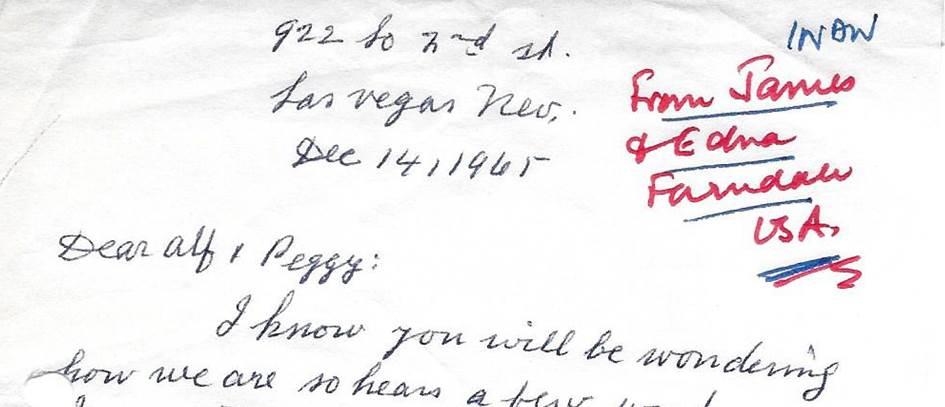 922 So 2nd st.
Las vegas Nev,.
Dec 14, 1965
INDW
From James
& Edna
Farndale
USA.
Dear Alf & Peggy:
I know you will be wondering
how we are so hears a few